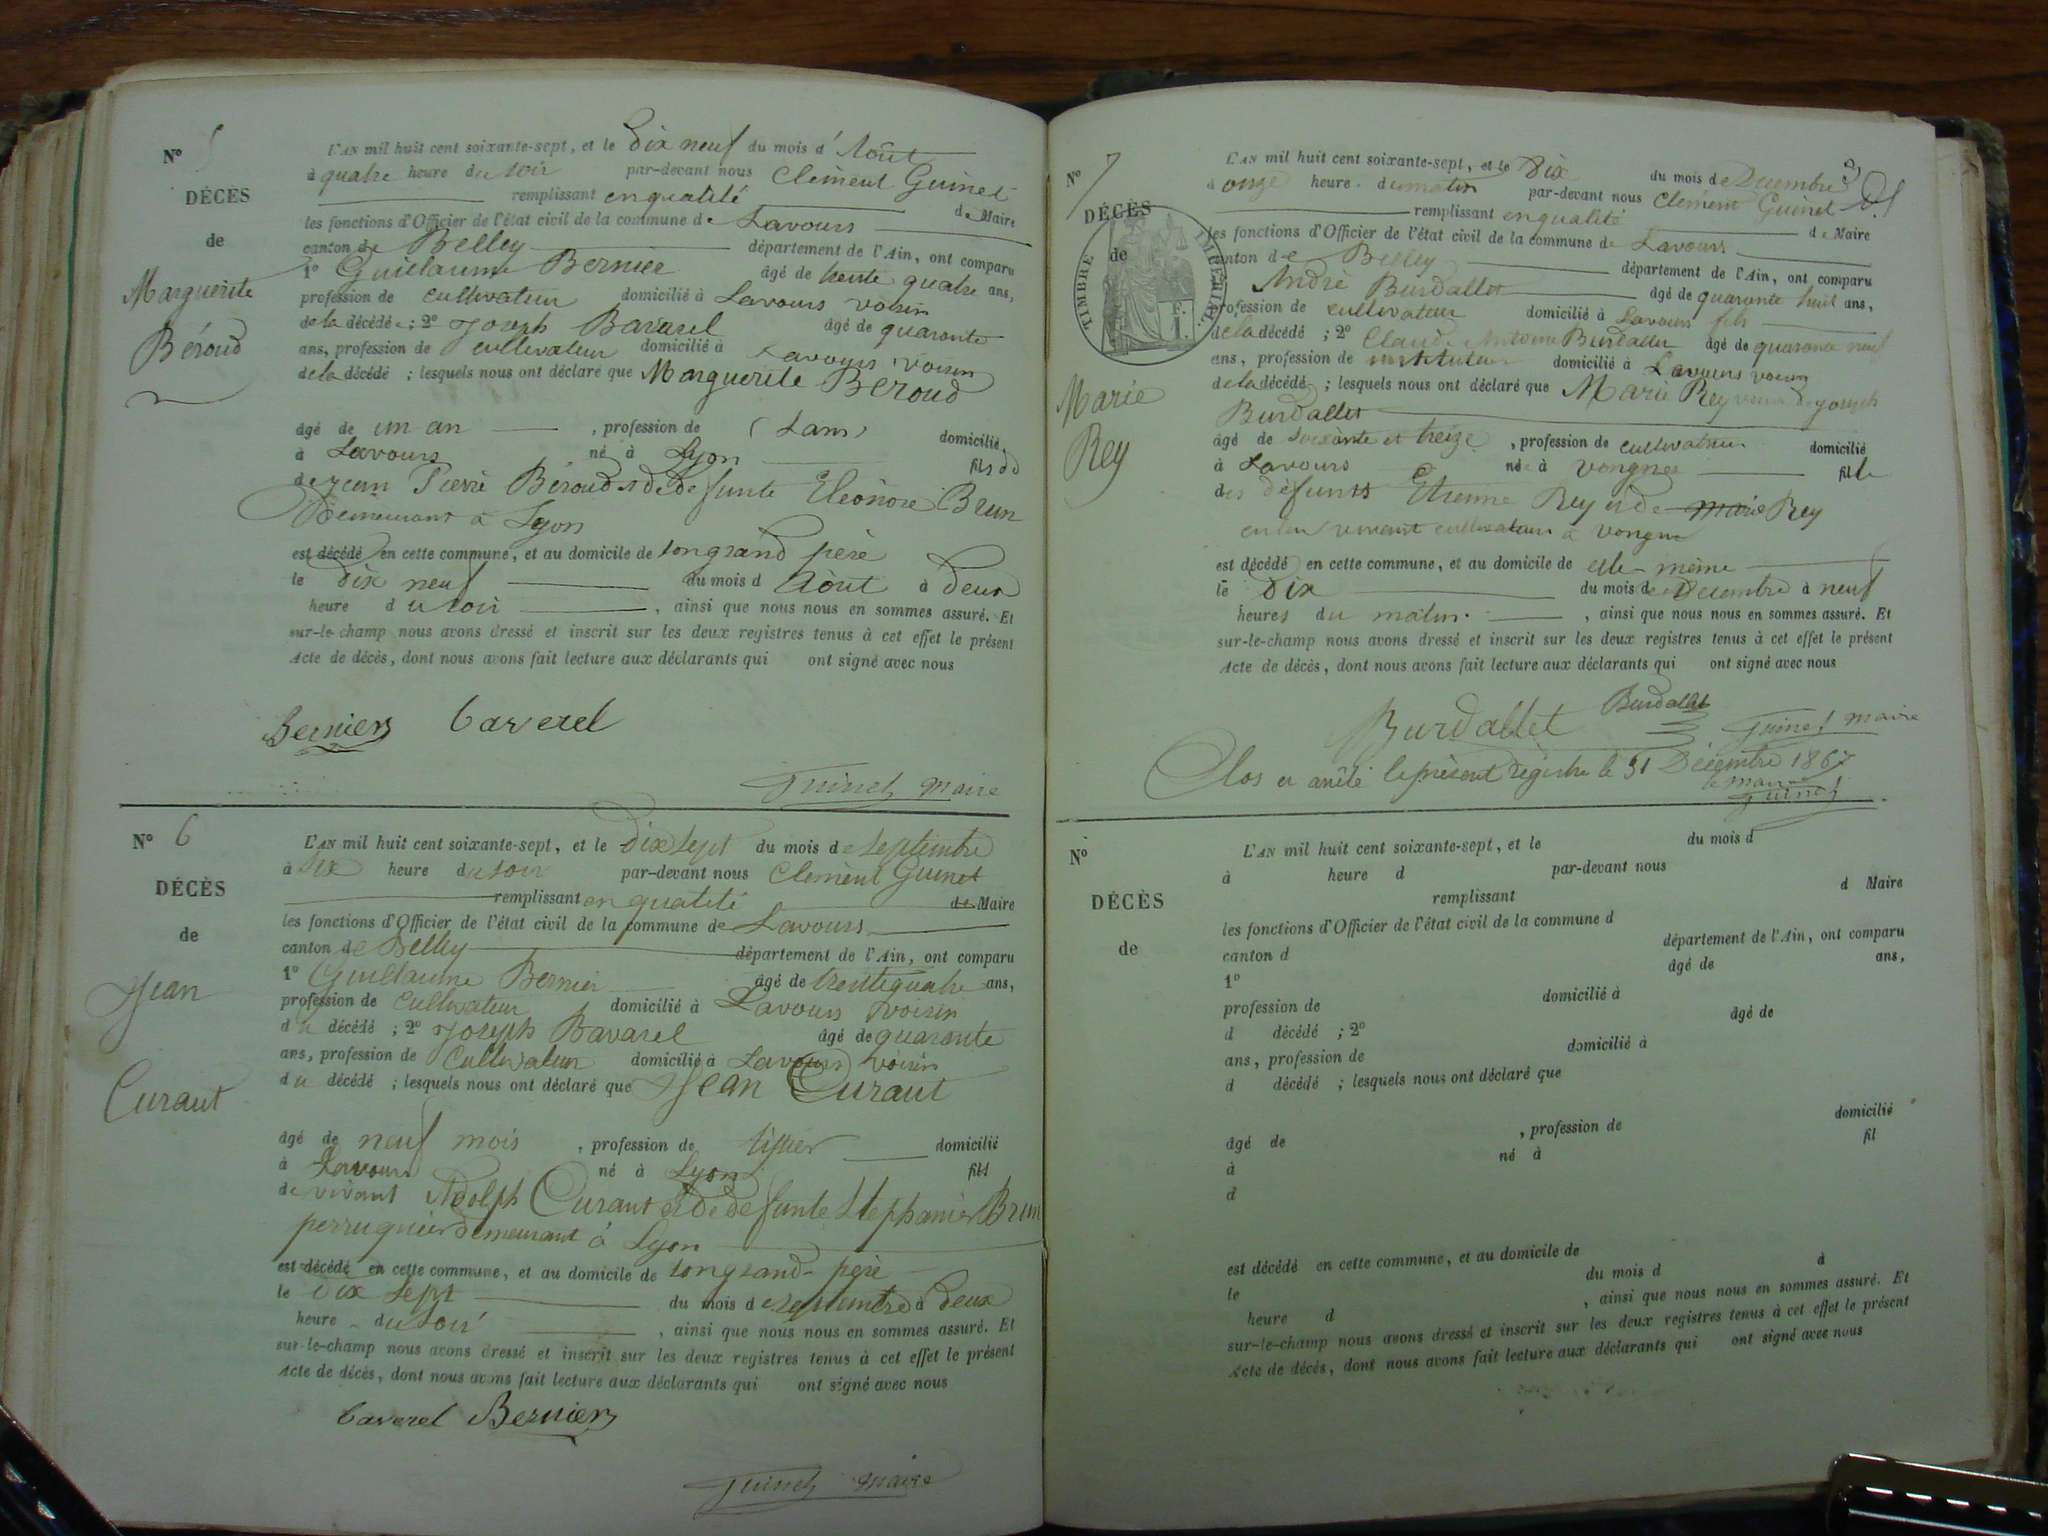 Nº 5
DÉCÈS
de
Marguerite
Béroud
L'AN mil huit cent soixante-sept, et le Dix neuf du mois d'Aôut
à quatre heure du soir par-devant nous Clément Guinet
remplissant en qualité de Maire
les fonctions d'Officier de l'état civil de la commune de Lavours
canton de Belley département de l'Ain, ont comparu
1º Guillaume Bernier âgé de trente quatre ans,
profession de cultivateur domicilié à Lavours voisin
de la décédée; 2º Joseph Bavarel âgé de quarante
ans, profession de cultivateur domicilié à Lavours voisin
de la décédé; lesquels nous ont déclaré que Marguerite Béroud
âgé de un an, profession de (sans) domicilié
à Lavours né à Lyon fils de
de jean Pierre Béroud et de defunte Eléonore Brun
Demeurant à Lyon
est décédé en cette commune, et au domicile de son grand père
le dix neuf du mois d Aôut à deux
heure du soir, ainsi que nous nous en sommes assuré. Et
sur-le-champ nous avons dressé et inscrit sur les deux registres tenus à cet effet le présent
Acte de décès, dont nous avons fait lecture aux déclarants qui ont signé avec nous
Bernier Bavarel
Guinet maire
Nº 6
DÉCÈS
de
Jean
Curaut
L'AN mil huit cent soixante-sept, et le Dix sept du mois de septembre
à six heure du soir par-devant nous Clément Guinet
remplissant en qualité de Maire
les fonctions d'Officier de l'état civil de la commune de Lavours
canton de Belley département de l'Ain, ont comparu
1º Guillaume Bernier âgé de trente quatre ans,
profession de cultivateur domicilié à Lavours voisin
du décédé; 2º Joseph Bavarel âgé de quarante
ans, profession de cultivateur domicilié à Lavours voisin
du décédé; lesquels nous ont déclaré que Jean Curaut
âgé de neuf mois, profession de domicilié
à Lavours né à Lyon fils
de vivant Adolph Curaut et de defunte Stephanie Brun
perruquier demeurant à Lyon
est décédé en cette commune, et au domicile de son grand-père
le dix sept du mois de septembre à deux
heure du soir, ainsi que nous nous en sommes assuré. Et
sur-le-champ nous avons dressé et inscrit sur les deux registres tenus à cet effet le présent
Acte de décès, dont nous avons fait lecture aux déclarants qui ont signé avec nous
Bavarel Bernier
Guinet maire
Nº 7
DÉCÈS
de
TIMBRE IMPÉRIAL
F. 1.
Marie
Rey
L'AN mil huit cent soixante-sept, et le Dix du mois de Décembre
à onze heure du matin par-devant nous Clément Guinet
remplissant en qualité de Maire
les fonctions d'Officier de l'état civil de la commune de Lavours
canton de Belley département de l'Ain, ont comparu
André Burdallet âgé de quarante huit ans,
profession de cultivateur domicilié à Lavours fils
de la décédé; 2º Claude Antoine Burdallet âgé de quarante neuf
ans, profession de instituteur domicilié à Lavours voisin
de la décédé; lesquels nous ont déclaré que Marie Rey veuve de joseph
Burdallet
âgé de soixante et treize, profession de cultivateur domicilié
à Lavours née à Vongnes fille
des défunts Etienne Rey et de marie Rey
en leur vivant cultivateur à Vongne
est décédé en cette commune, et au domicile de elle-même
le Dix du mois de Décembre à neuf
heures du matin, ainsi que nous nous en sommes assuré. Et
sur-le-champ nous avons dressé et inscrit sur les deux registres tenus à cet effet le présent
Acte de décès, dont nous avons fait lecture aux déclarants qui ont signé avec nous
Burdallet Burdallet Guinet maire
Clos et arrêté le présent régistre le 31 Décembre 1867
le maire
Guinet
Nº
DÉCÈS
de
L'AN mil huit cent soixante-sept, et le du mois d
à heure d par-devant nous
remplissant d Maire
les fonctions d'Officier de l'état civil de la commune d
canton d département de l'Ain, ont comparu
1º âgé de ans,
profession de domicilié à
d décédé; 2º âgé de
ans, profession de domicilié à
d décédé; lesquels nous ont déclaré que
âgé de, profession de domicilié
à né à fil
d
est décédé en cette commune, et au domicile de
le du mois d à
heure d, ainsi que nous nous en sommes assuré. Et
sur-le-champ nous avons dressé et inscrit sur les deux registres tenus à cet effet le présent
Acte de décès, dont nous avons fait lecture aux déclarants qui ont signé avec nous